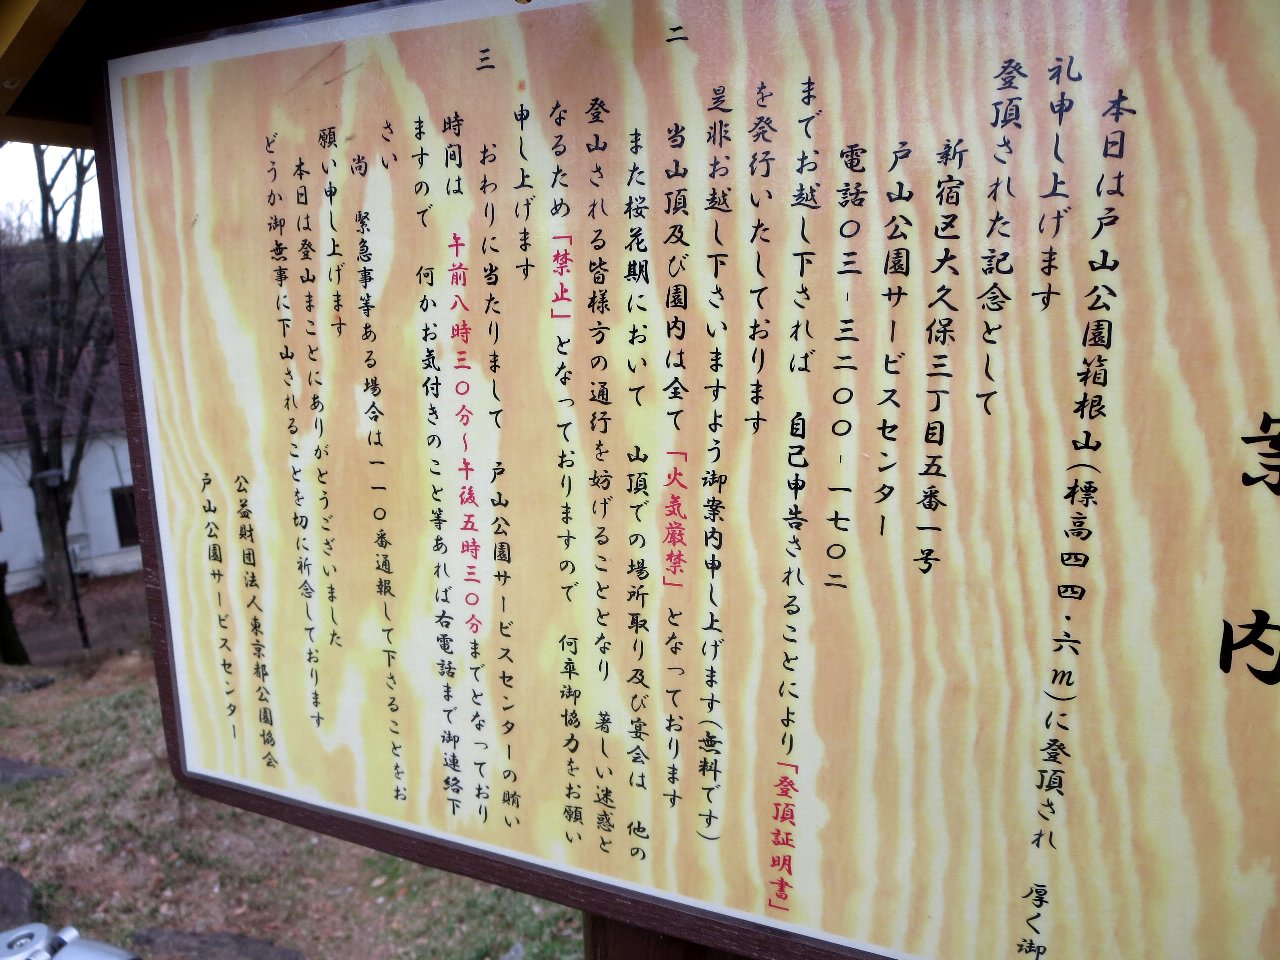 案内
本日は戸山公園箱根山(標高四四・六m)に登頂され 厚く御
礼申し上げます
登頂された記念として
新宿区大久保三丁目五番一号
戸山公園サービスセンター
電話〇三-三二〇〇-一七〇二
までお越し下されば 自己申告されることにより「登頂証明書」
を発行いたしております
是非お越し下さいますよう御案内申し上げます(無料です)
二
当山頂及び園内は全て「火気厳禁」となっております
また桜花期において 山頂での場所取り及び宴会は 他の
登山される皆様方の通行を妨げることとなり 著しい迷惑と
なるため「禁止」となっておりますので 何卒御協力をお願い
申し上げます
三
おわりに当たりまして 戸山公園サービスセンターの賄い
時間は 午前八時三〇分~午後五時三〇分までとなっており
ますので 何かお気付きのこと等あれば右電話まで御連絡下
さい
尚 緊急事等ある場合は一一〇番通報して下さることをお
願い申し上げます
本日は登山まことにありがとうございました
どうか御無事に下山されることを切に祈念しております
公益財団法人東京都公園協会
戸山公園サービスセンター